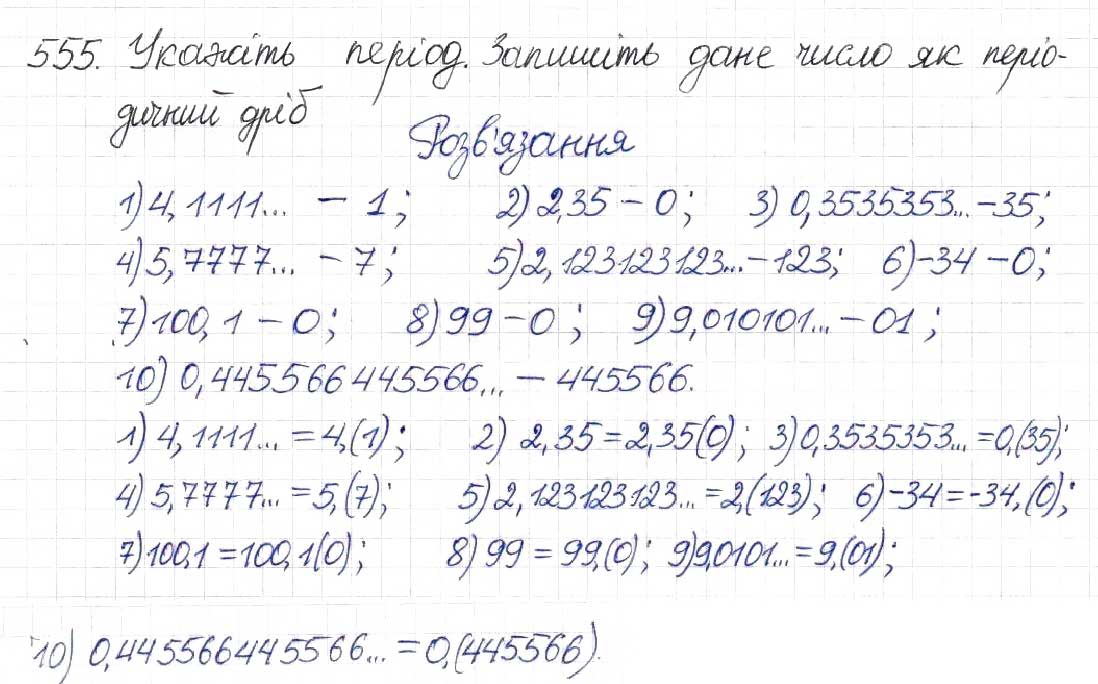 555. Укажіть період. Запишіть дане число як періо-
дичний дріб
Розв'язання
1) 4,1111... - 1; 2) 2,35 - 0; 3) 0,3535353... - 35;
4) 5,7777... - 7; 5) 2,123123123... - 123; 6) -34 - 0;
7) 100,1 - 0; 8) 99 - 0; 9) 9,010101... - 01;
10) 0,445566445566... - 445566.
1) 4,1111... = 4,(1); 2) 2,35 = 2,35(0); 3) 0,3535353... = 0,(35);
4) 5,7777... = 5,(7); 5) 2,123123123... = 2,(123); 6) -34 = -34,(0);
7) 100,1 = 100,1(0); 8) 99 = 99,(0); 9) 9,0101... = 9,(01);
10) 0,445566445566... = 0,(445566).